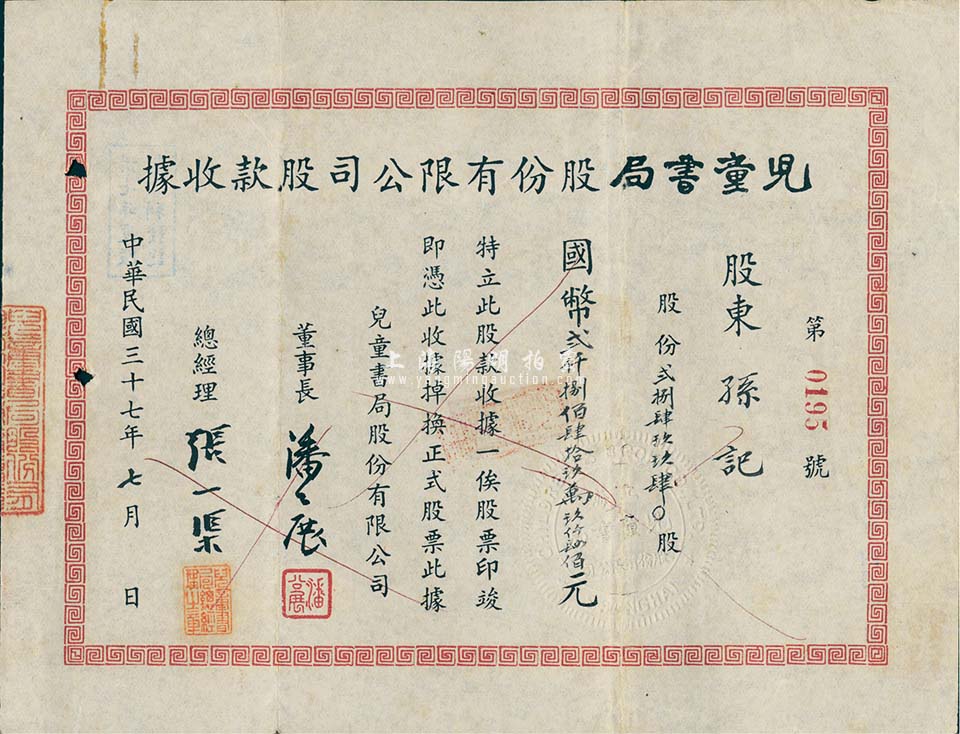 兒童書局股份有限公司股款收據
第0195號
股東 孫記
股份弍捌肆玖玖肆0股
國幣弍仟捌佰肆拾玖萬玖仟肆佰元
特立此股款收據一俟股票印竣
即憑此收據掉換正式股票此據
兒童書局股份有限公司
董事長 潘公展
潘公展
總經理 張一渠
中華民國三十七年七月 日
上海陽明拍賣
www.yangmingauction.com